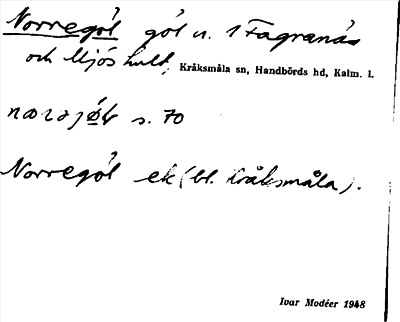 Norregöl göl n. 1 Fagranäs
och Mjöshult, Kråksmåla sn, Handbörds hd, Kalm. l.
s. 70
Norregöl ek (bl. Kråksmåla).
Ivar Modéer 1948